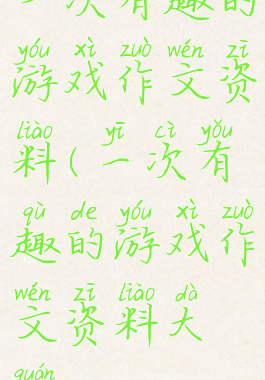 一次有趣的
yóu xì zuò wén zī
游戏作文资
liào yī cì yǒu
料(一次有
qù de yóu xì zuò
趣的游戏作
wén zī liào dà
文资料大
quán